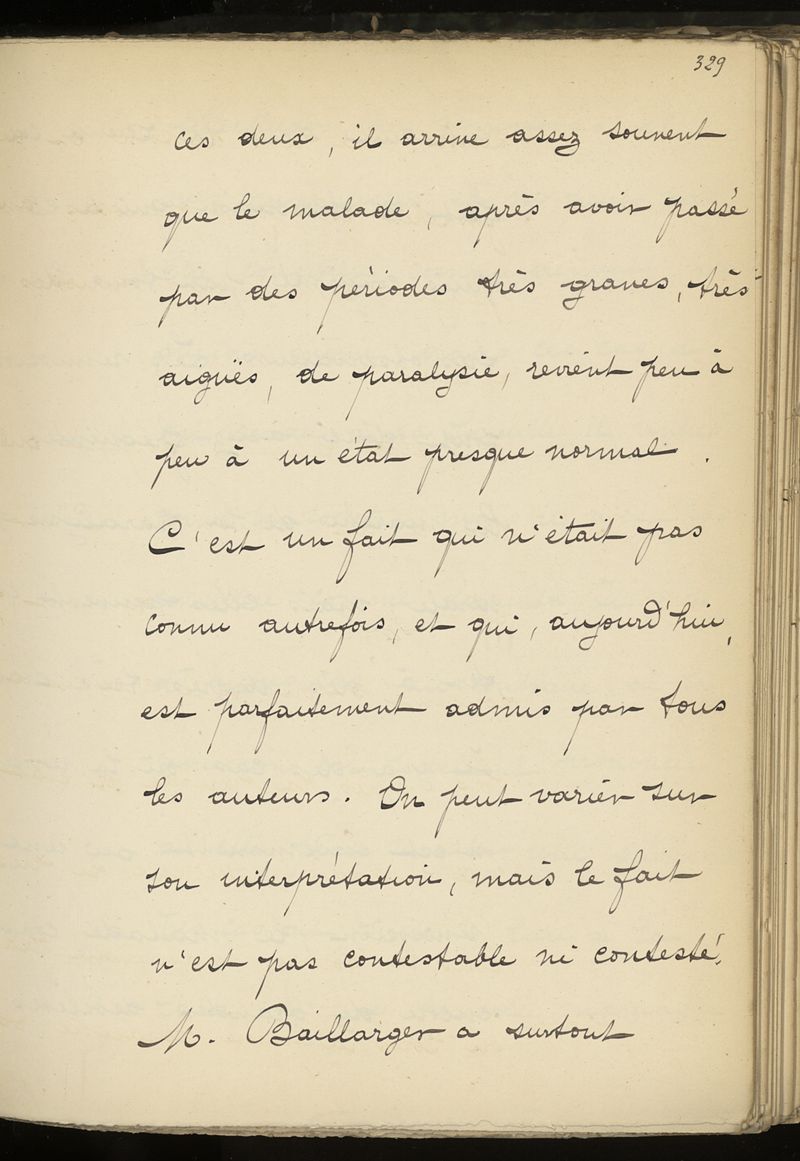 329
ces deux, il arrive assez souvent
que le malade, après avoir passé
par des périodes très graves, très
aiguës, de paralysie, revient peu à
peu à un état presque normal.
C'est un fait qui n'était pas
connu autrefois, et qui, aujourd'hui,
est parfaitement admis par tous
les auteurs. On peut varier sur
son interprétation, mais le fait
n'est pas contestable ni contesté.
M. Baillarger a surtout